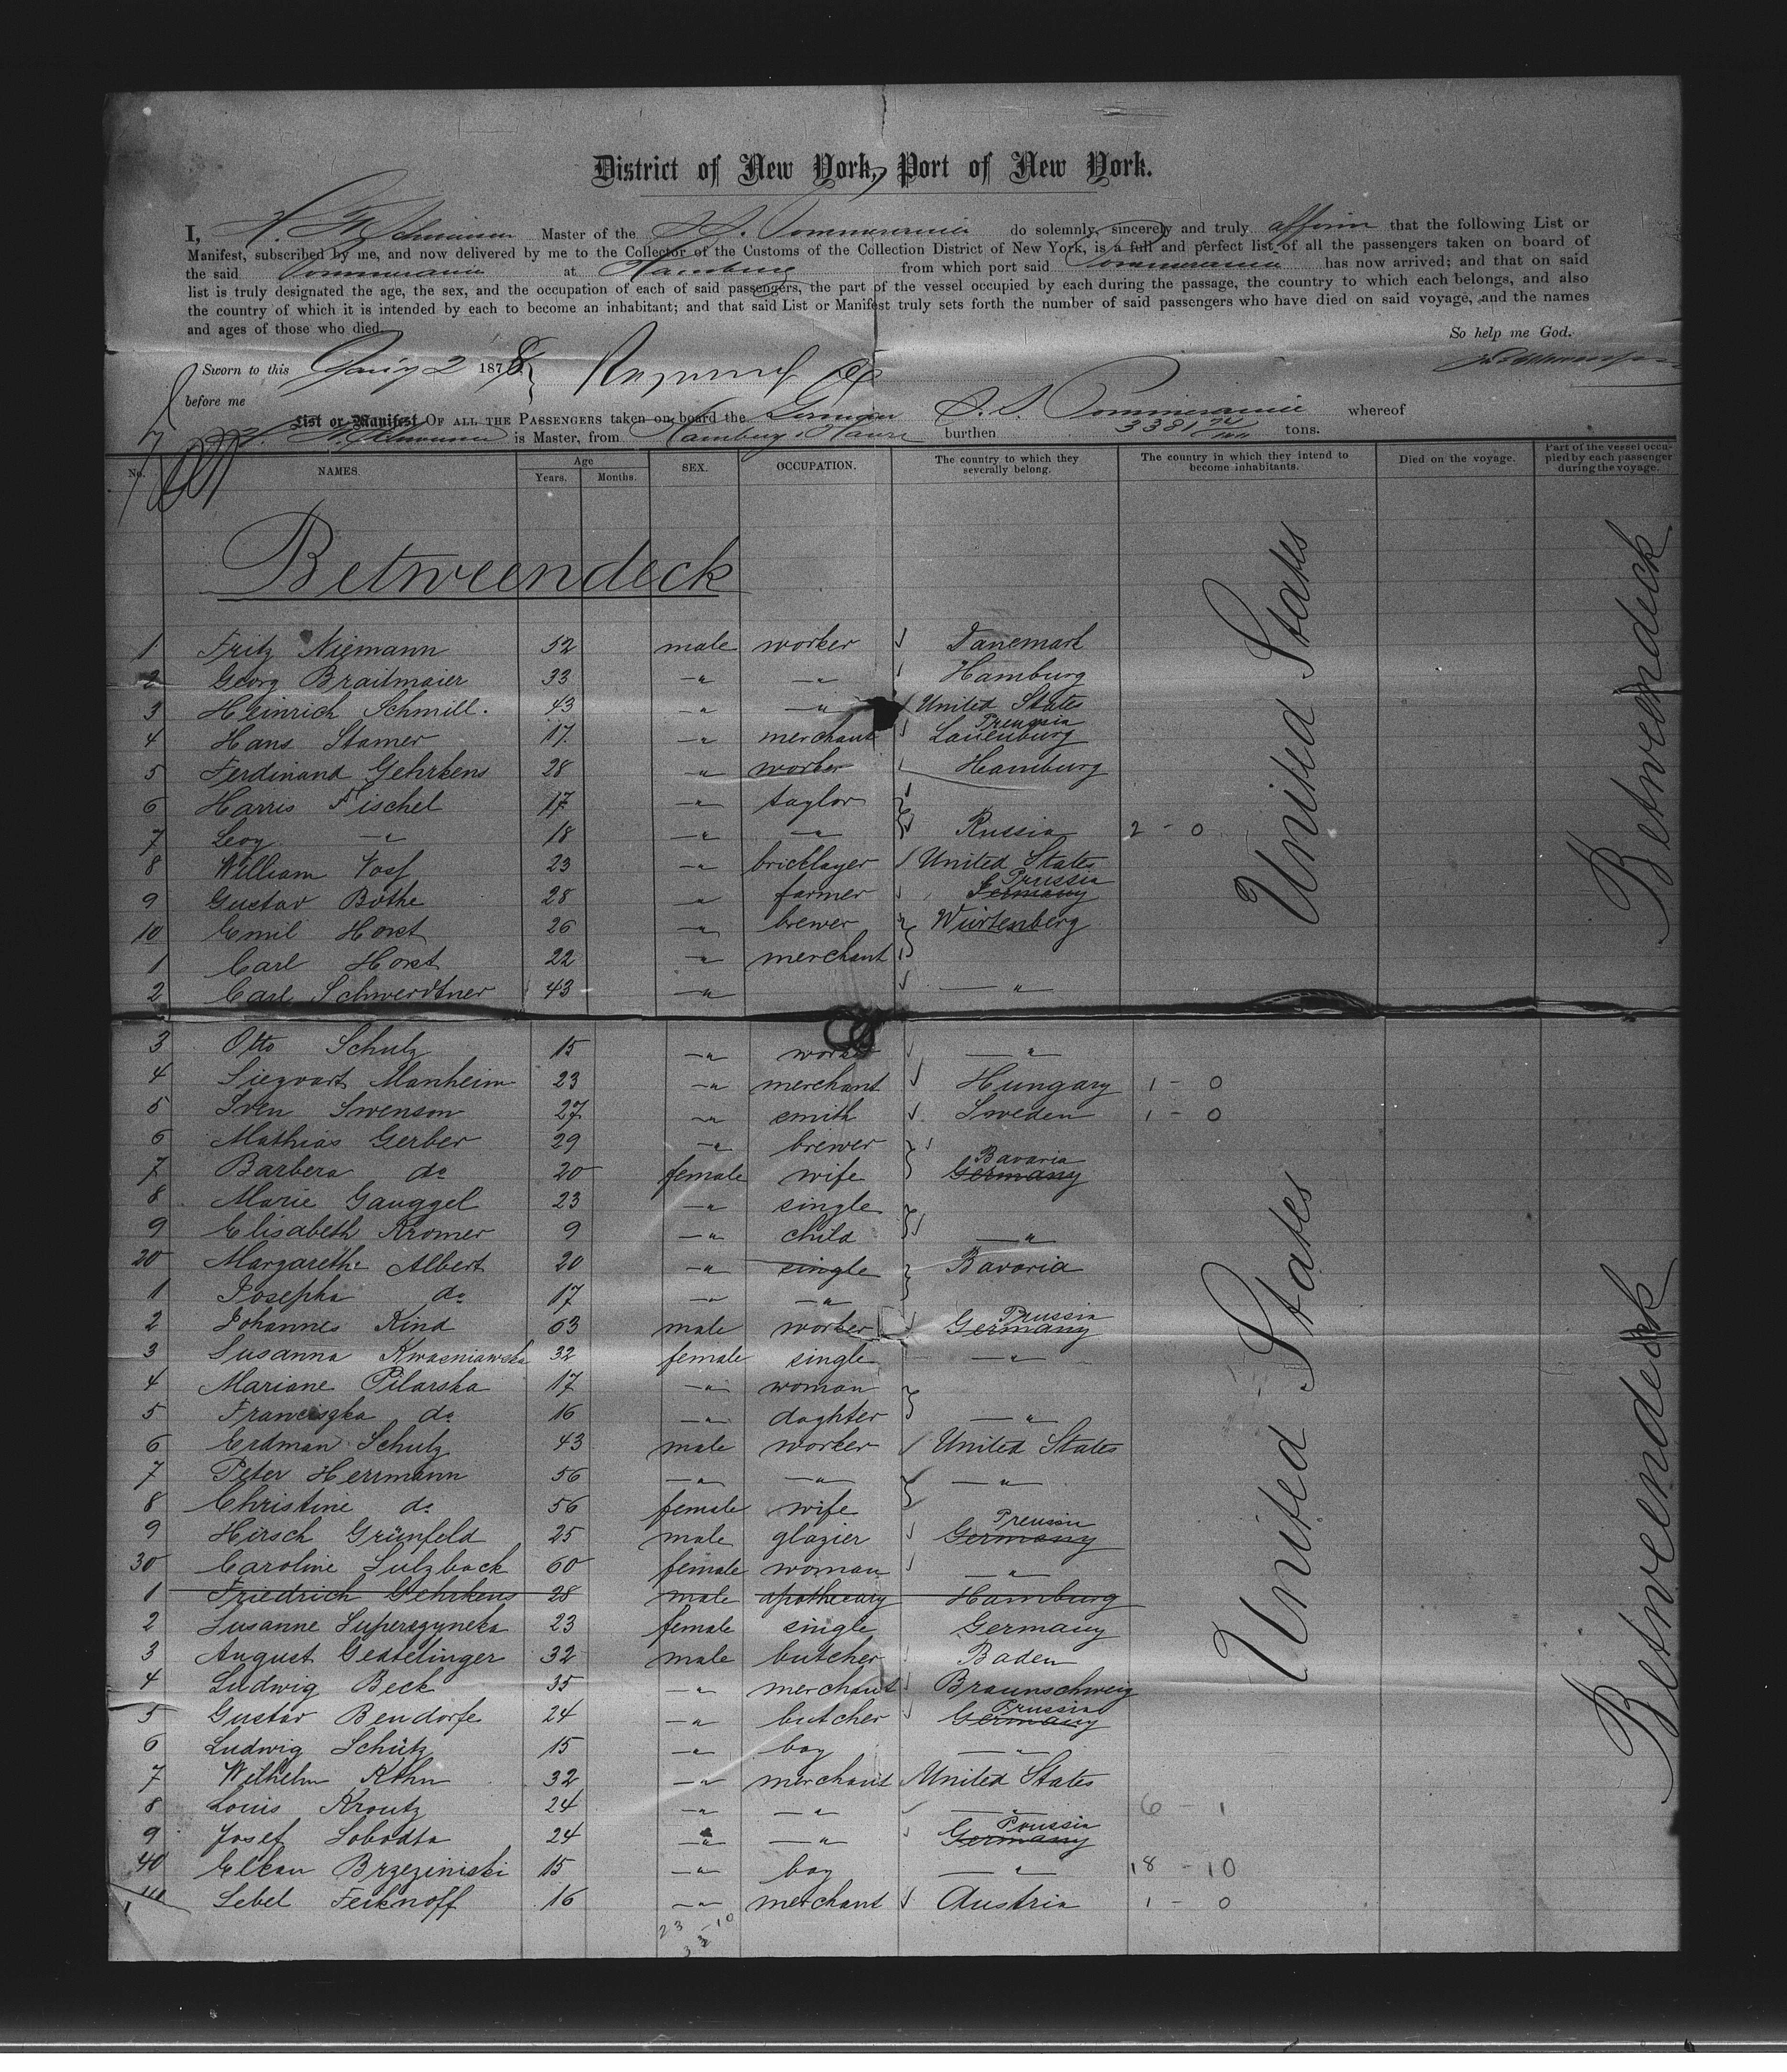 District of New York, Port of New York.
I, Schwensen Master of the S. S. Pommerania do solemnly, sincerely and truly affirm that the following List or
Manifest, subscribed by me, and now delivered by me to the Collector of the Customs of the Collection District of New York, is a full and perfect list of all the passengers taken on board of
the said Pommerania at Hamburg from which port said Pommerania has now arrived; and that on said
list is truly designated the age, the sex, and the occupation of each of said passengers, the part of the vessel occupied by each during the passage, the country to which each belongs, and also
the country of which it is intended by each to become an inhabitant; and that said List or Manifest truly sets forth the number of said passengers who have died on said voyage, and the names
and ages of those who died. So help me God.
Sworn to this Jan'y 2 1878
before me
List or Manifest OF ALL THE PASSENGERS taken on board the German S. S. Pommerania whereof
is Master, from Hamburg & Havre burthen 3381 tons.
No. NAMES. Age Years. Months. SEX. OCCUPATION. The country to which they severally belong. The country in which they intend to become inhabitants. Died on the voyage. Part of the vessel occupied by each passenger during the voyage.
Betweendeck
United States
Betweendeck
1 Fritz Niemann 52 male worker Danemark
2 Georg Braitmaier 33 —"— —"— Hamburg
3 Heinrich Schmill. 43 —"— —"— United States
4 Hans Stamer 17. —"— merchant Preussia Lauenburg
5 Ferdinand Gehrkens 28 —"— worker Hamburg
6 Harris Fischel 17 —"— taylor
7 Levy —"— 18 —"— —"— Russia 2 - 0
8 William Voss 23 —"— bricklayer United States
9 Gustav Bothe 28 —"— farmer Prussia Germany
10 Emil Horst 26 —"— brewer Würtenberg
1 Carl Horst 22 —"— merchant
2 Carl Schwerdtner 43 —"— —"—
3 Otto Schulz 15 —"— worker —"—
4 Siegvart Manheim 23 —"— merchant Hungary 1 - 0
5 Sven Swenson 27 —"— smith Sweden 1 - 0
6 Mathias Gerber 29 —"— brewer
7 Barbera do 20 female wife Bavaria Germany
8 Marie Gauggel 23 —"— single
9 Elisabeth Kromer 9 —"— child —"—
20 Margarethe Albert 20 —"— single Bavaria
1 Josepha do 17 —"— —"—
2 Johannes Kind 63 male worker Prussia Germany
3 Susanna Kwasniawska 32 female single —"—
4 Mariane Pilarska 17 —"— woman
5 Franciszka do 16 —"— daghter —"—
6 Erdman Schulz 43 male worker United States
7 Peter Herrmann 56 —"— —"— —"—
8 Christine do 56 female wife
9 Hirsch Grünfeld 25 male glazier Preussia Germany
30 Caroline Sulzback 60 female woman —"—
1 Friedrich Gehrkens 28 male apothecary Hamburg
2 Susanne Superczyneka 23 female single Germany
3 August Gestelinger 32 male butcher Baden
4 Ludwig Beck 35 —"— merchant Braunschweig
5 Gustav Bendorfe 24 —"— butcher Prussia Germany
6 Ludwig Schütz 15 —"— boy —"—
7 Wilhelm Kohn 32 —"— merchant United States
8 Louis Kroutz 24 —"— —"— —"— 6 - 1
9 Josef Lobodta 24 —"— —"— Prussia Germany
40 Elkan Brzeziniski 15 —"— boy —"— 18 - 10
Lebel Feiknoff 16 —"— merchant Austria 1 - 0
United States
Betweendeck
23 - 10